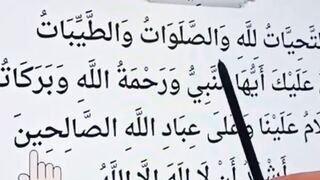 التَّحِيَّاتُ لِلَّهِ وَالصَّلَوَاتُ وَالطَّيِّبَاتُ
عَلَيْكَ أَيُّهَا النَّبِيُّ وَرَحْمَةُ اللَّهِ وَبَرَكَاتُ
عَلَيْنَا وَعَلَى عِبَادِ اللَّهِ الصَّالِحِينَ
أَنْ لَا إِلَهَ إِلَّا اللَّهُ